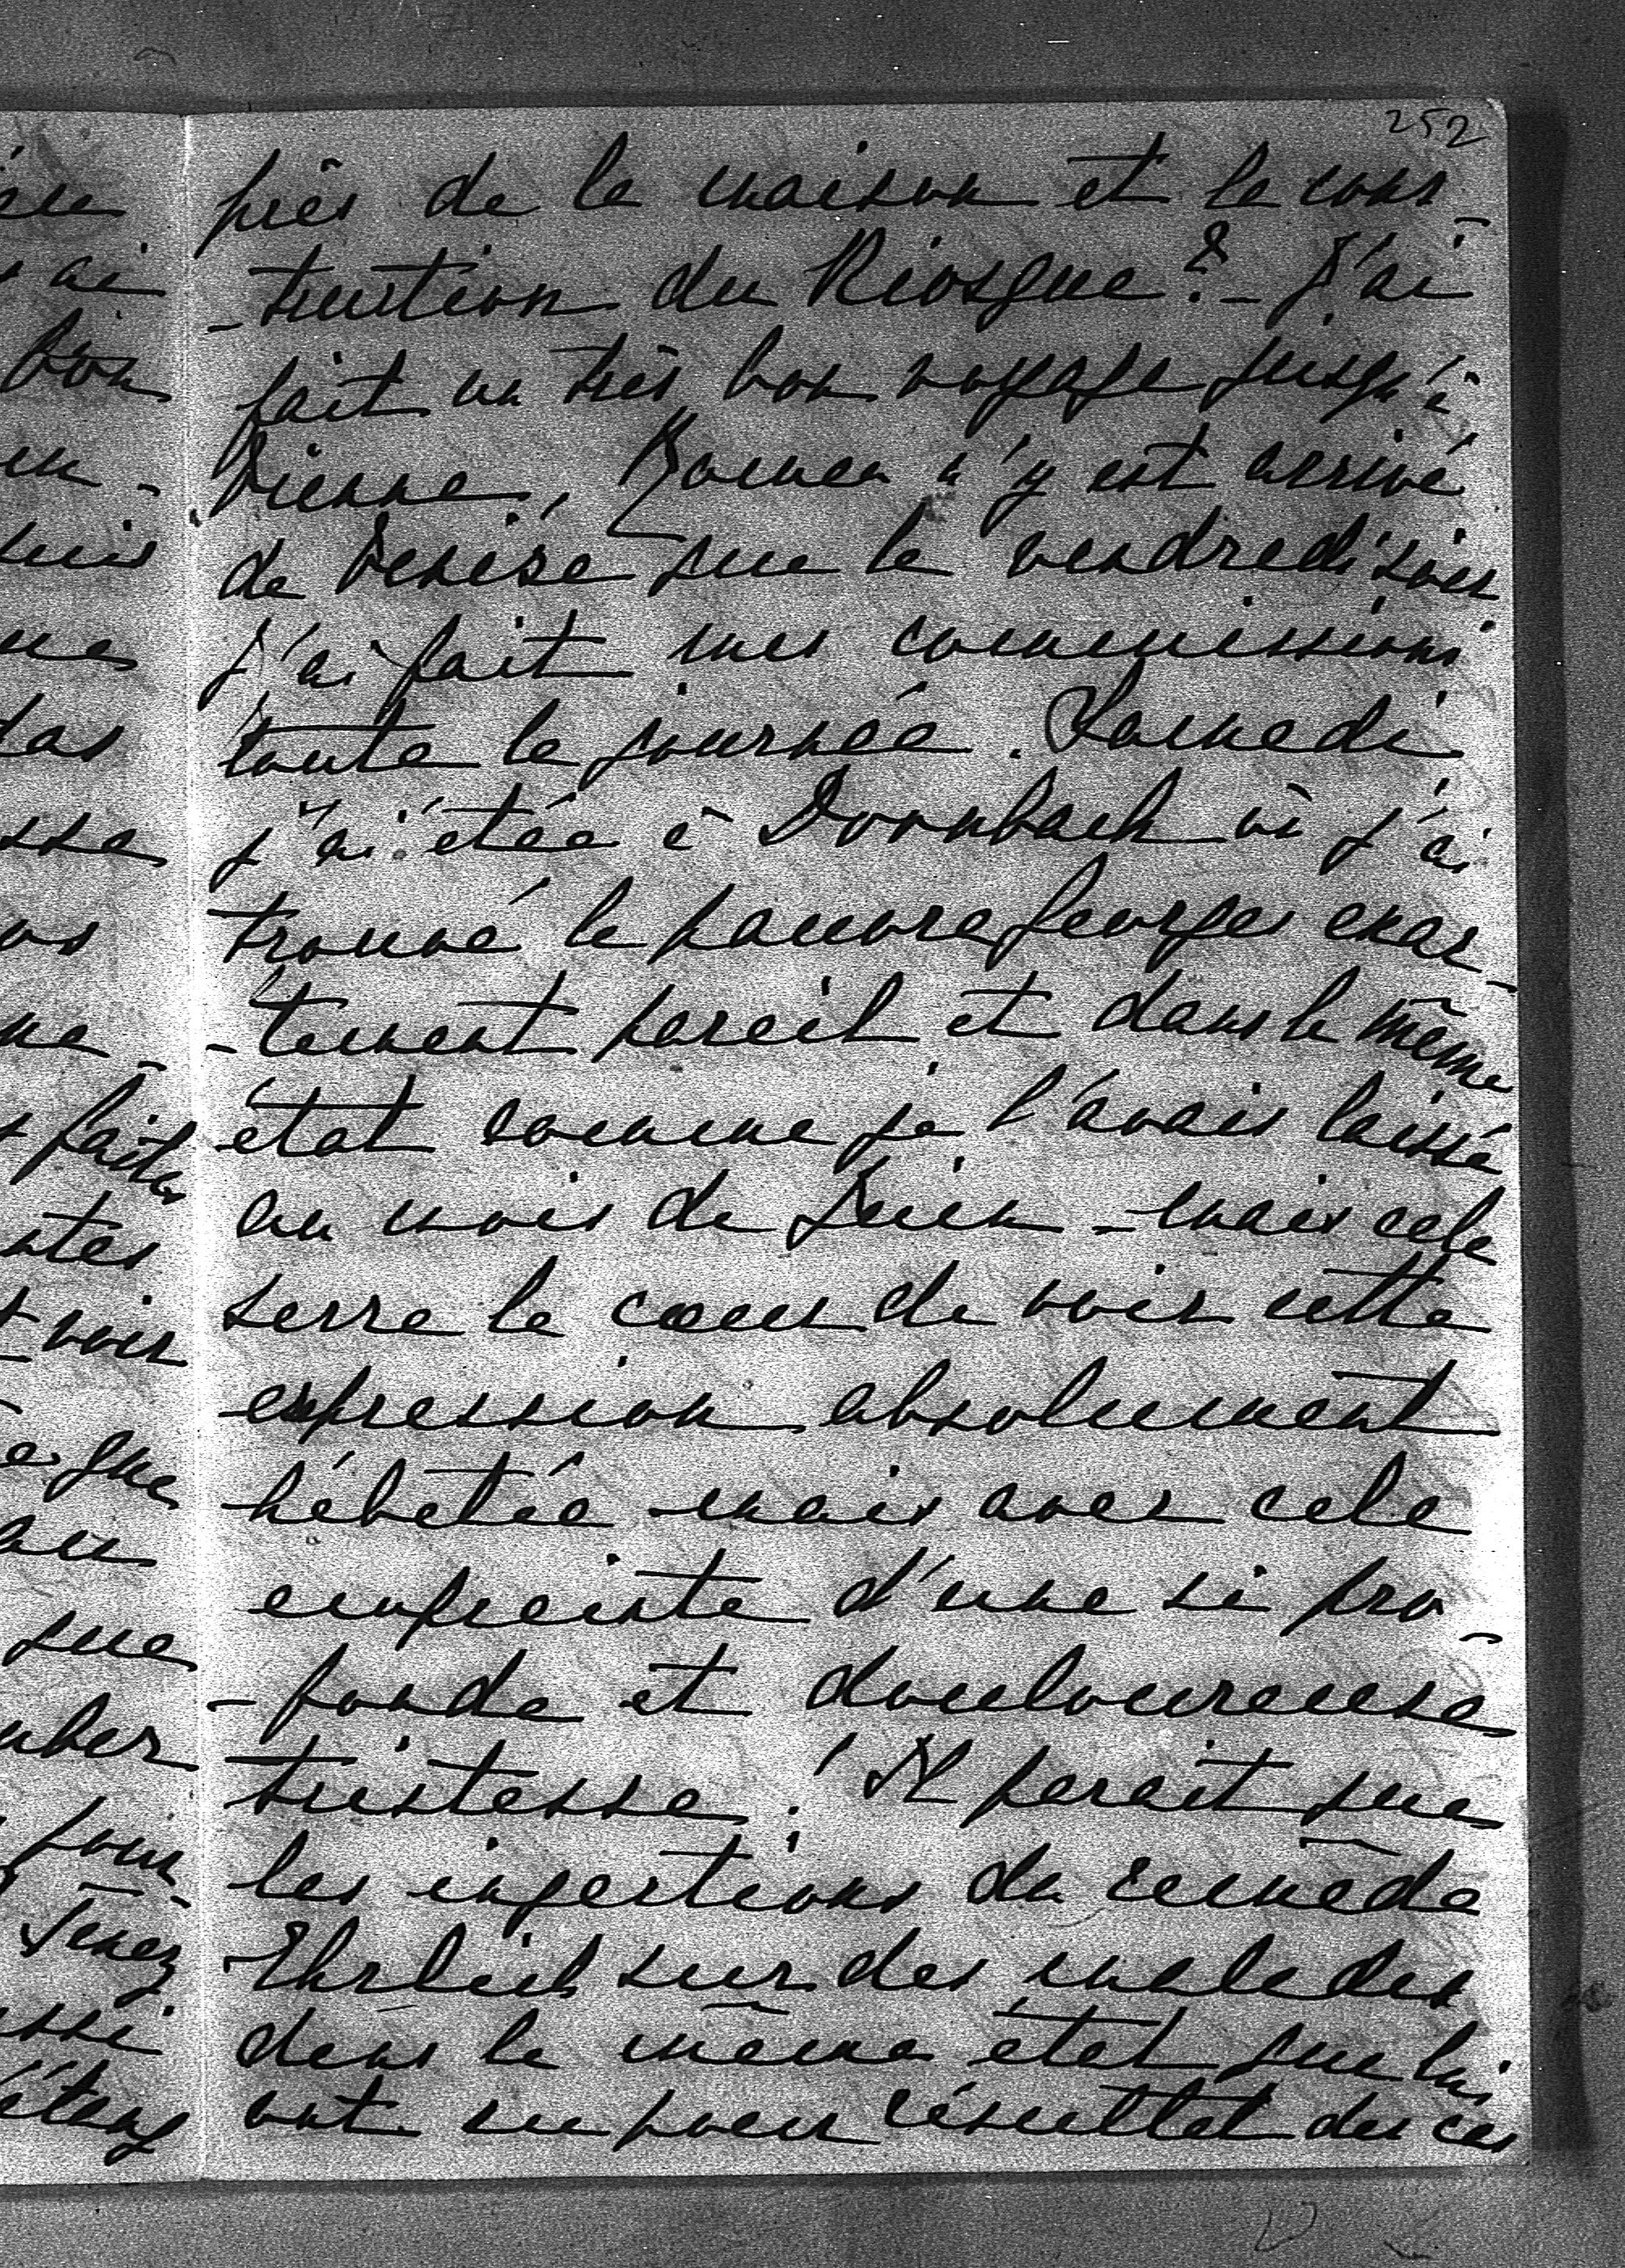 252
près de la maison et la cons-
-truction du Kiosque? - J'ai
fait un très bon voyage jusqu'à
Vienne, n'y est arrivé
de Venise que le vendredi soir
j'ai fait mes commissions
toute la journée. Samedi
j'ai étée à Dornbach où j'ai
trouvé le pauvre Georges exac-
-tement pareil et dans le même
état comme je l'avais laissé
au mois de Juin - mais cela
serre le cœur de voir cette
expression absolument
hébetée - mais avec cela
empreinte d'une si pro-
-fonde et douloureuse
tristesse! Il parait que
les injections du remède
Ehrlich sur des malades
dans le même état que lui
ont eu pour résultat des cas